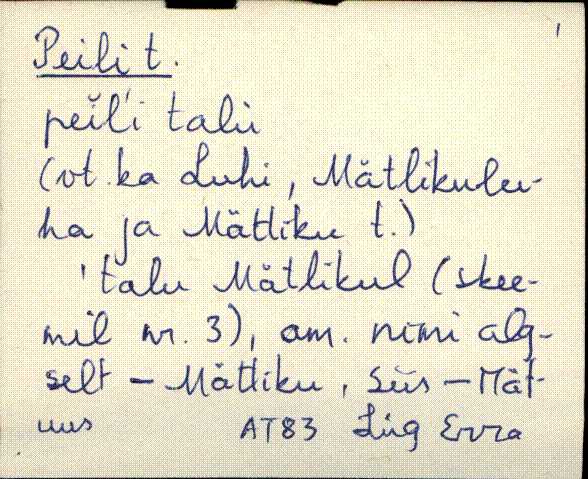 1
Peili t.
peil'i talu
(vt. ka Luhi, Mätlikulu-
ha ja Mätliku t.)
'talu Mätlikul (skee-
mil nr. 3), am. nimi alg-
selt - Mätliku, siis - Mät-
uus AT83 Lüg Erra